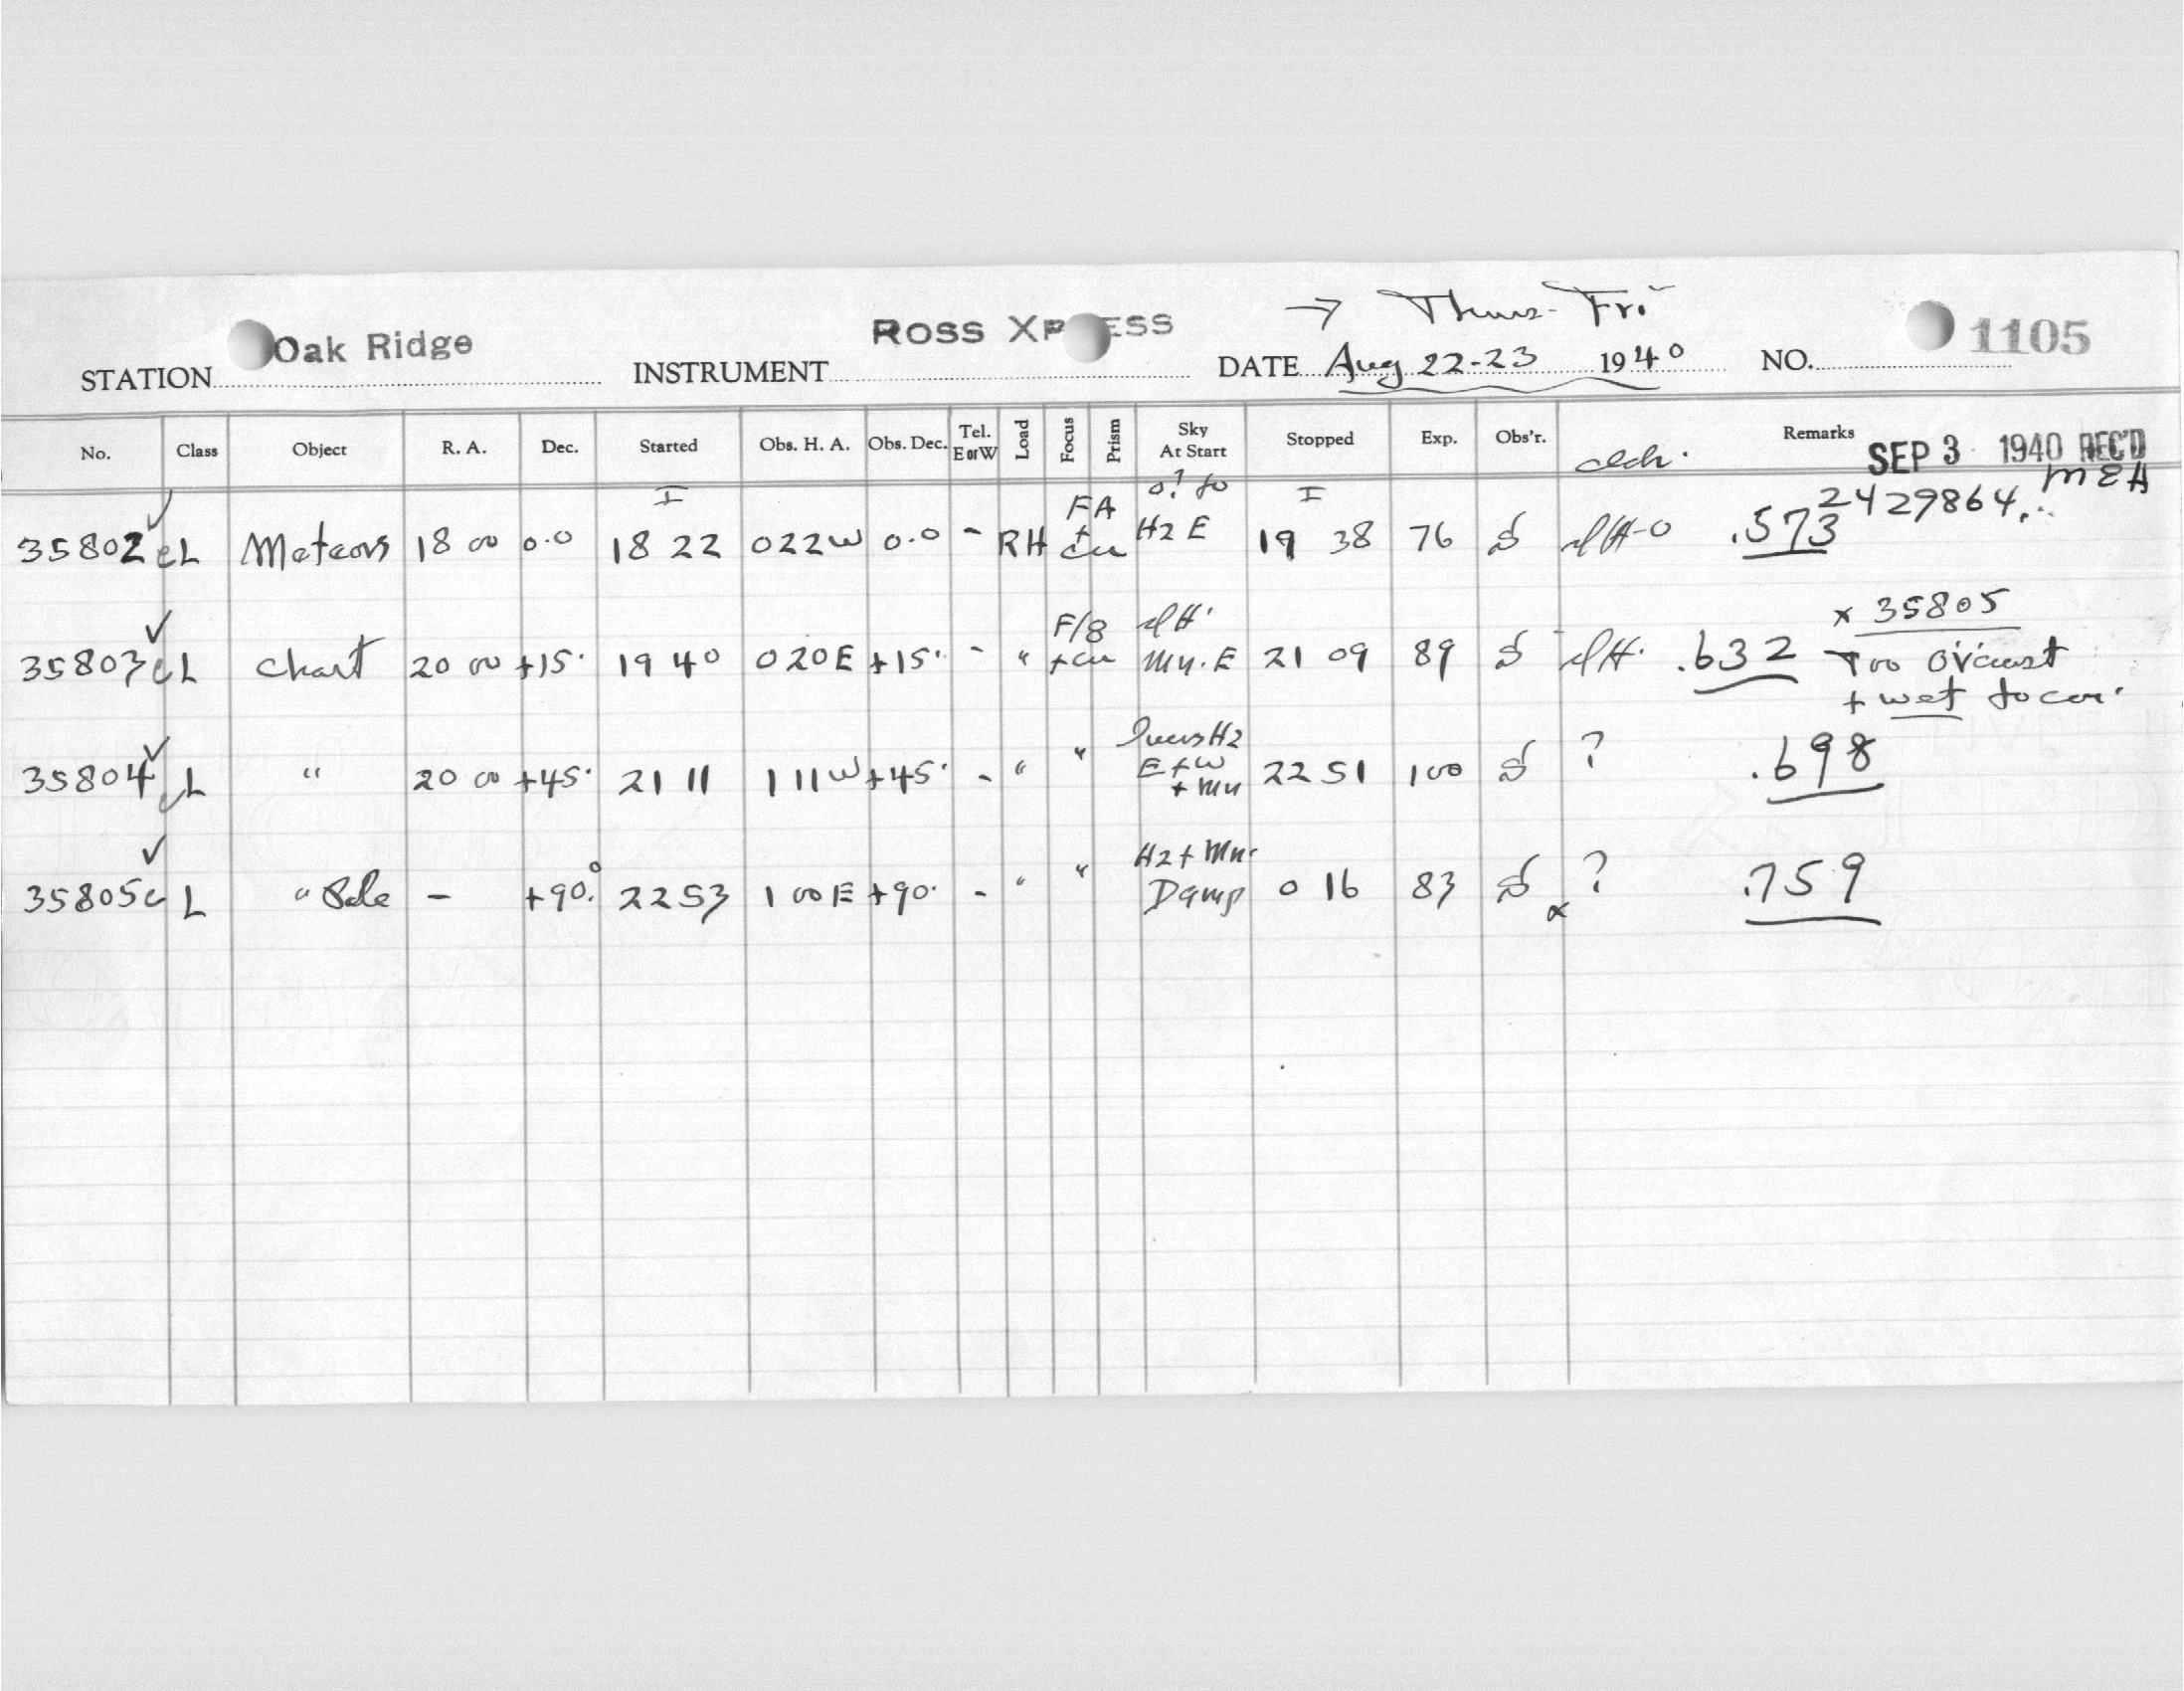 → Thurs-Fri
STATION Oak Ridge INSTRUMENT ROSS XP ESS DATE Aug 22-23 1940 NO. 1105
No. Class Object R. A. Dec. Started Obs. H. A. Obs. Dec. Tel. E or W Load Focus Prism Sky At Start Stopped Exp. Obs'r. Remarks
SEP 3 1940 REC'D
MEH
2429864.
35802 ✓ c L Meteors 18 00 0.0 I 18 22 0 22 W 0.0 - RH FA + cu to Hz E I 19 38 76 S .573
35803 ✓ c L Chart 20 00 +15. 19 40 0 20 E +15. - " F/8 + cu Mn. E 21 09 89 S .632
x 35805
Too o'vcast
+ wet to
35804 ✓ c L " 20 00 +45. 21 11 1 11 W +45. - " " Hz E + W + Mn 22 51 100 S ? .698
35805 ✓ c L " Pole - +90.° 22 53 1 00 E +90. - " " Hz + Mn. Damp 0 16 83 S x ? .759